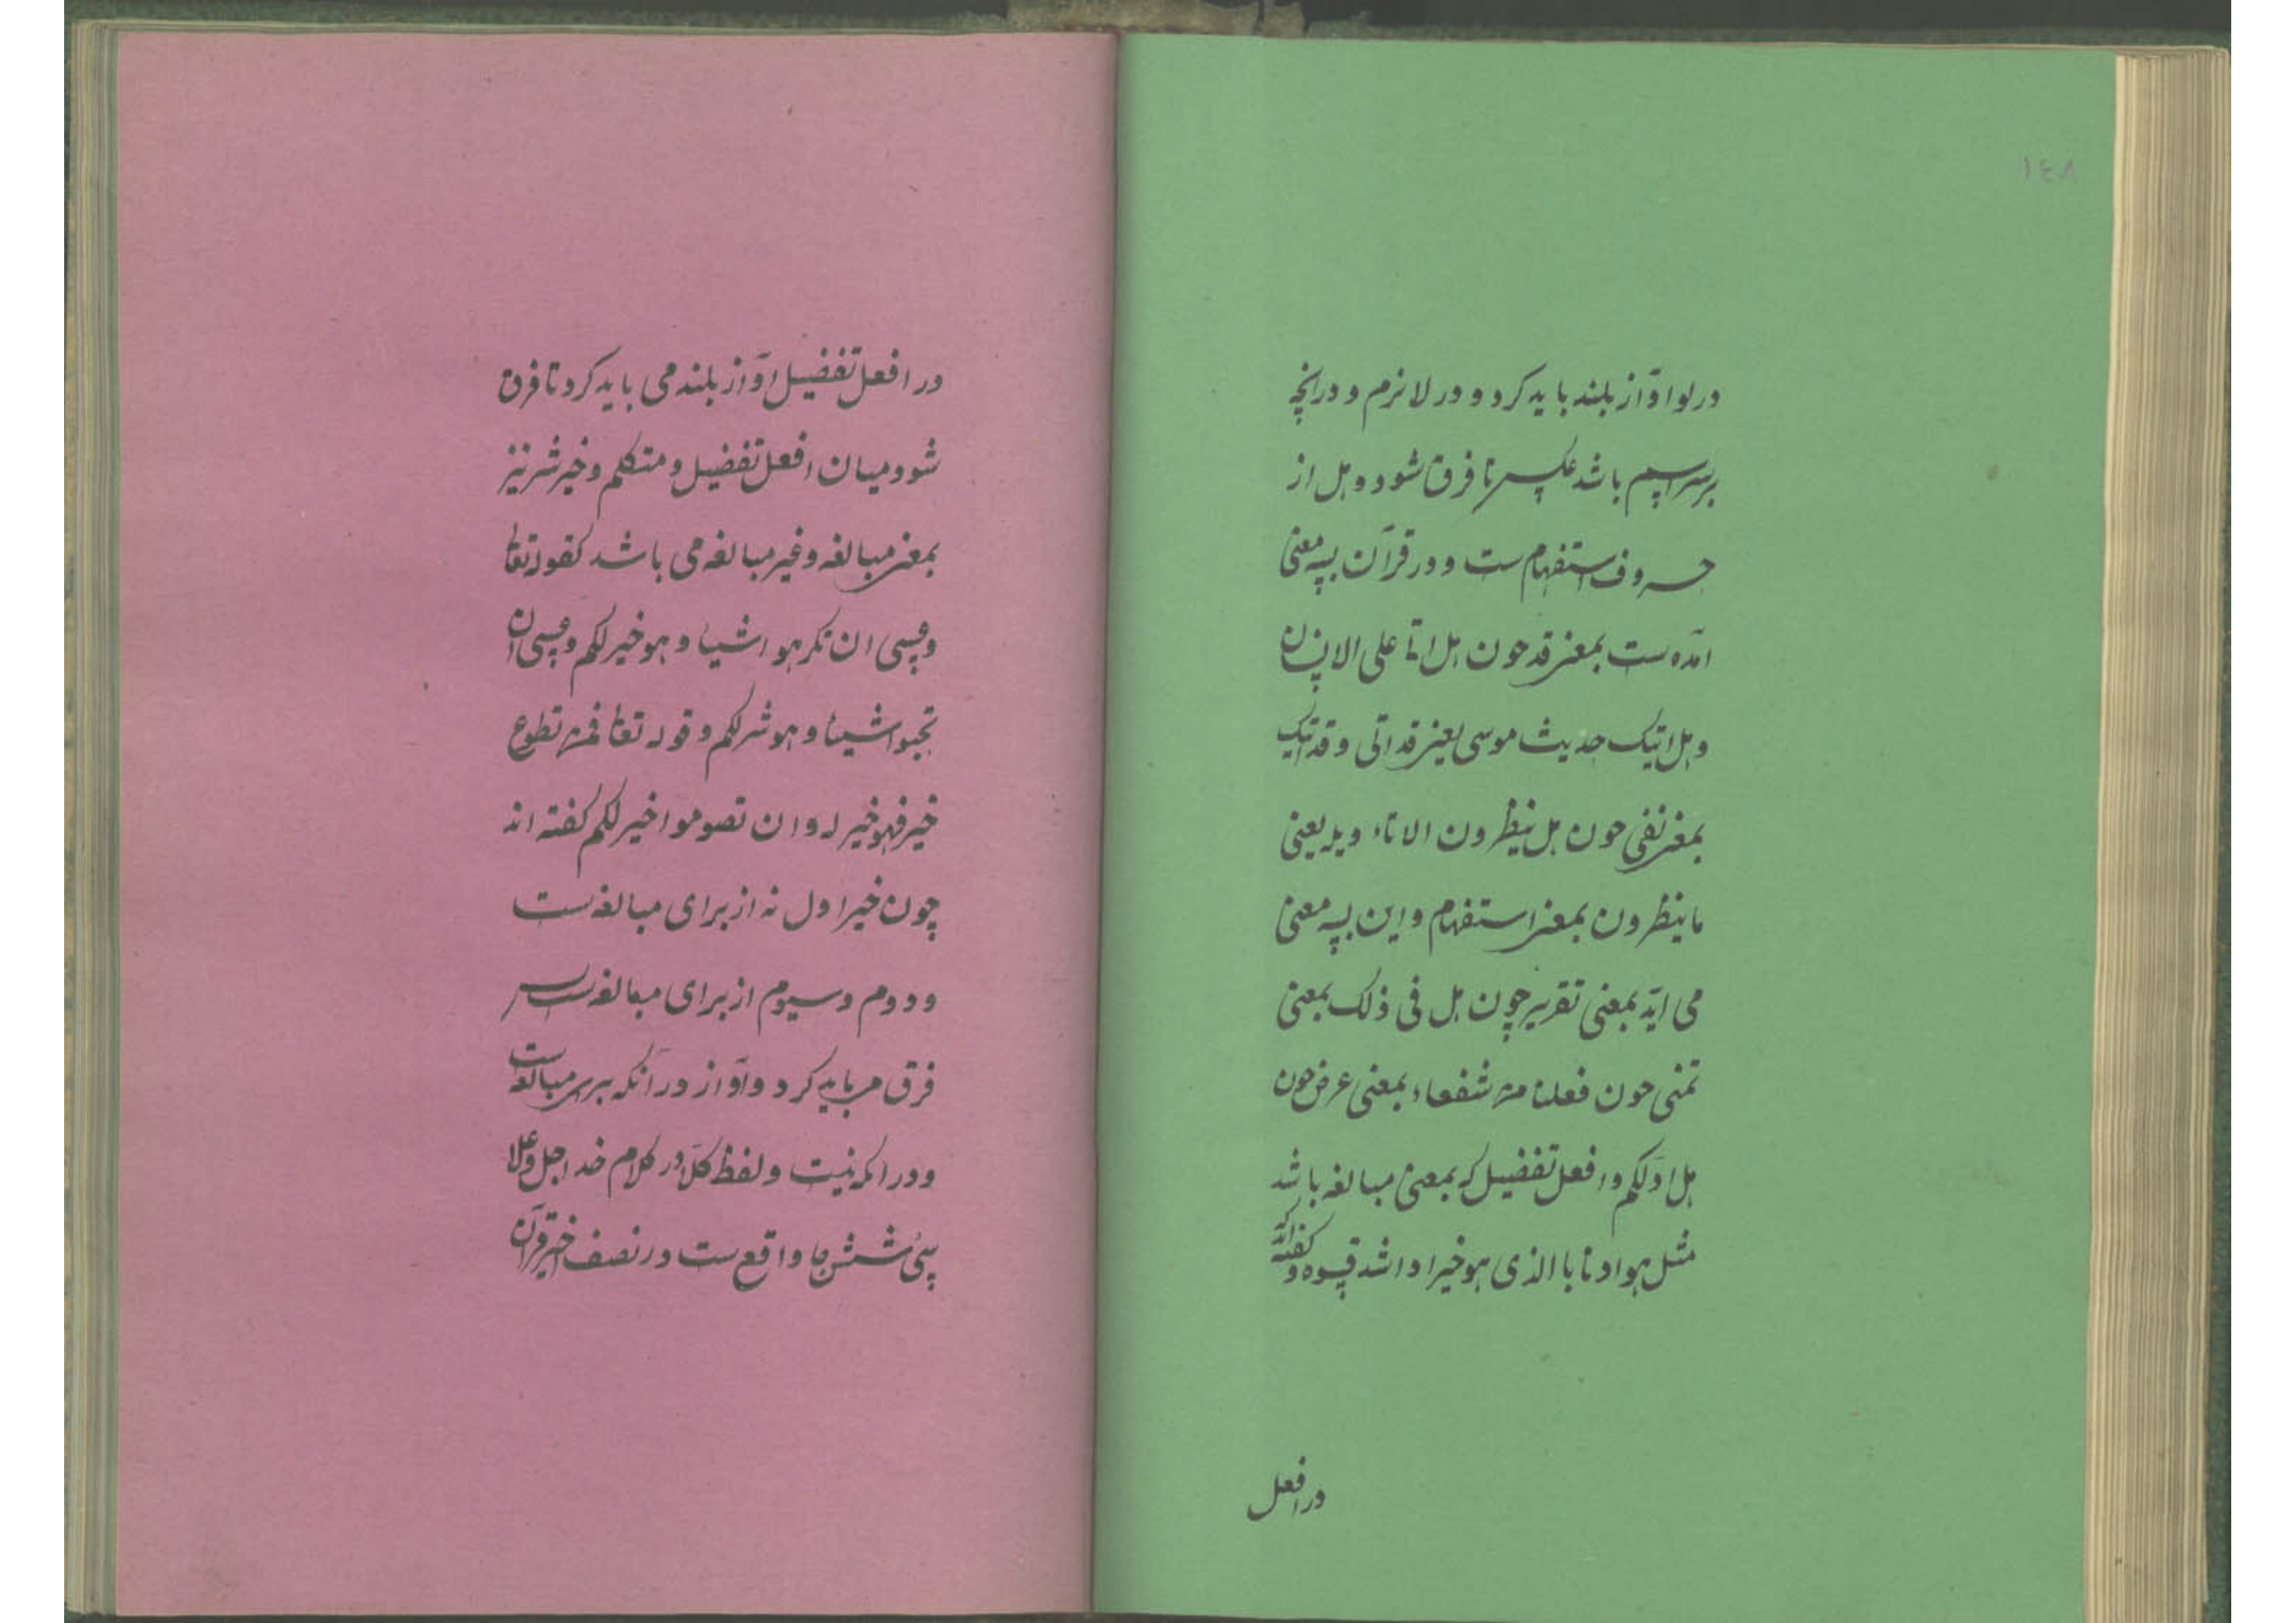 ۱٤۸
در لو اوآز بلند باید کرد و در لا نرم و درانچه
بر سر اسم باشد عکس تا فرق شود و هل از
حروف استفهام ست و در قرآن بسه معنی
امده ست بمعنی قد چون هل اتا علی الانسان
و هل اتیک حدیث موسی یعنی قد اتی و قد اتیک
بمعنی نفی چون هل ینظرون الا تاءویله یعنی
ما ینظرون بمعنی استفهام و این بسه معنی
می اید بمعنی تقریر چون هل فی ذلک بمعنی
تمنی چون فهلنا من شفعاء بمعنی عرض چون
هل ادلکم و افعل تفضیل که بمعنی مبالغه باشد
مثل هو ادنا بالذی هو خیر او اشد قسوه و گفته اند که
در افعل
در افعل تفضیل اوآز بلند می باید کرد تا فرق
شود میان افعل تفضیل و متکلم و خیر شر نیز
بمعنی مبالغه و غیر مبالغه می باشد کقوله تعا
وعسی ان تکرهو اشیا و هو خیر لکم وعسی ان
تحبو اشیئا و هو شر لکم و قوله تعا فمن تطوع
خیر فهو خیر له و ان تصوموا خیر لکم گفته اند
چون خیر اول نه از برای مبالغه ست
و دوم و سیوم از برای مبالغه ست پس
فرق می باید کرد و اوآز در انکه برای مبالغه ست
و در انکه نیست و لفظ کلا در کلام خدا جل وعلا
سی شش جا واقع ست در نصف اخیر قرآن